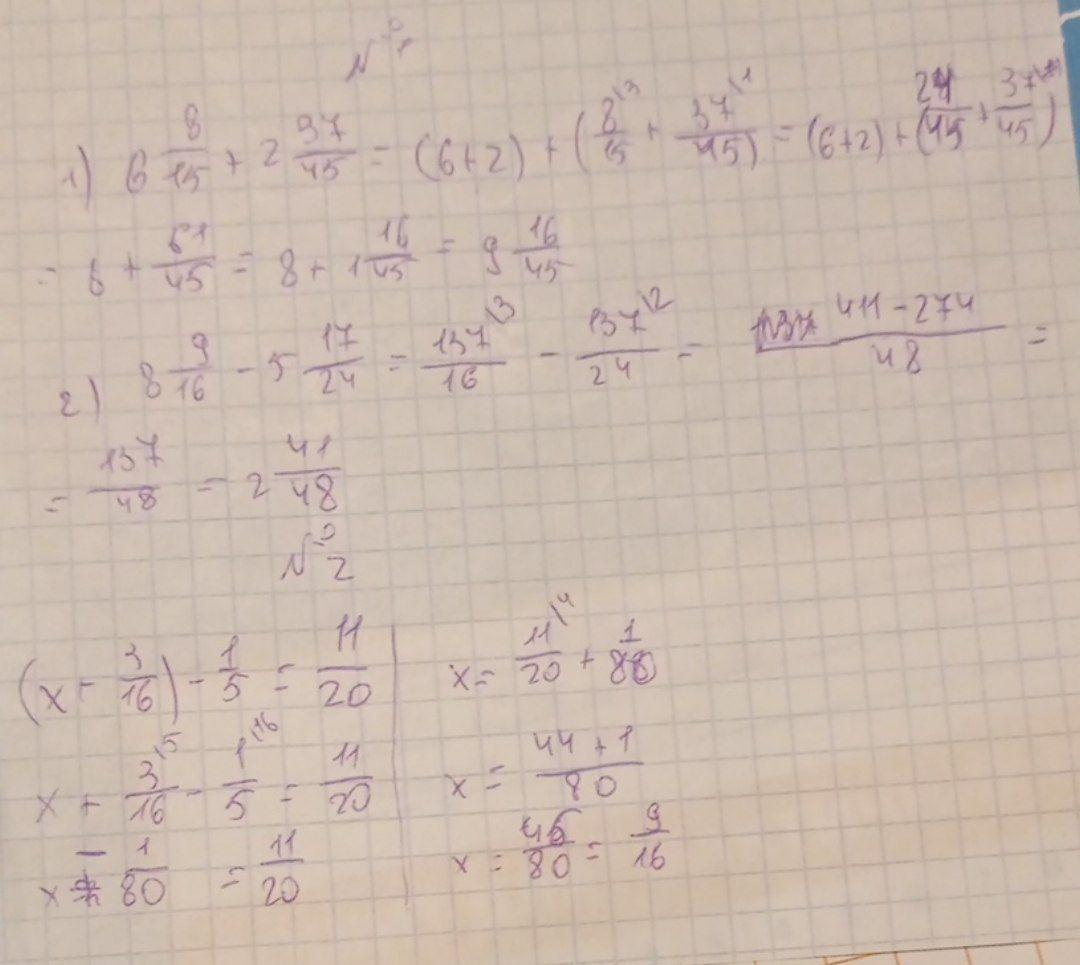 №1
1) 6 8/15 + 2 37/45 = (6+2) + (8/15 \3 + 37/45 \1) = (6+2) + (24/45 + 37/45)
= 8 + 61/45 = 8 + 1 16/45 = 9 16/45
2) 8 9/16 - 5 17/24 = 137/16 \3 - 137/24 \2 = 411-274/48 =
= 137/48 = 2 41/48
№2
(x + 3/16) - 1/5 = 11/20
x + 3/16 \5 - 1/5 \16 = 11/20
x - 1/80 = 11/20
x = 11/20 \4 + 1/80
x = 44+1/80
x = 45/80 = 9/16